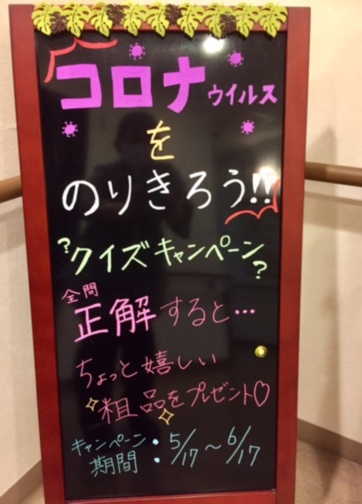 コロナウイルス
を
のりきろう!!
?クイズキャンペーン?
全問
正解すると…
ちょっと嬉しい
粗品をプレゼント♡
キャンペーン
期間:5/17～6/17